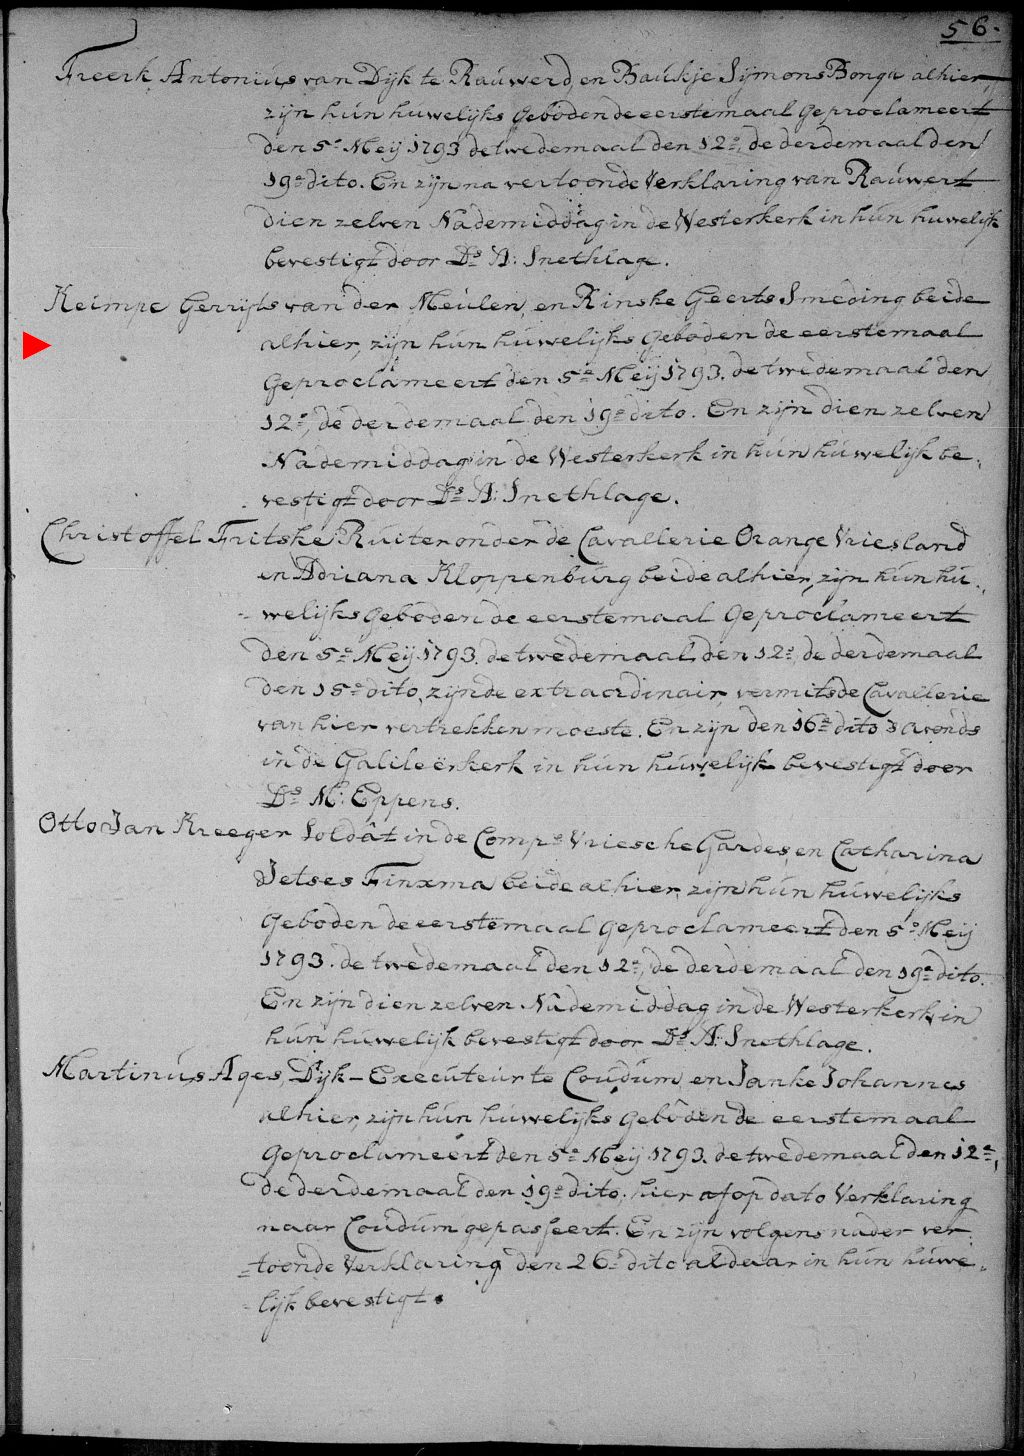 56.
Freerk Antonius van Dijk te Rauwerd, en Baukje Sijmons Bonga alhier,
zijn hun huwelijks Geboden de eerstemaal Geproclameert
den 5e Meij 1793 de twedemaal den 12e, de derdemaal den
19e dito. En zijn na vertoonde Verklaring van Rauwert
dien zelven Nademiddag in de Westerkerk in hun huwelijk
bevestigt door Ds A: Snethlage.
Keimpe Gerrijts van der Meulen, en Rinske Geerts Smeding beide
alhier, zijn hun huwelijks Geboden de eerstemaal
Geproclameert den 5e Meij 1793. de twedemaal den
12e, de derdemaal den 19e dito. En zijn dien zelven
Nademiddag in de Westerkerk in hun huwelijk be-
vestigt door Ds A: Snethlage.
Christoffel Fritske Ruiter onder de Cavallerie Orange Vriesland
en Adriana Kloppenburg beide alhier, zijn hun hu-
welijks Geboden de eerstemaal Geproclameert
den 5e Meij 1793. de twedemaal den 12e, de derdemaal
den 15e dito, zijnde extraordinair, vermits de Cavallerie
van hier vertrekken moeste. En zijn den 16e dito 's avonds
in de Galileërkerk in hun huwelijk bevestigt door
Ds M: Eppens.
Otto Jan Kreeger Soldât in de Compe Vriesche Gardes, en Catharina
Jetses Finxma beide alhier, zijn hun huwelijks
Geboden de eerstemaal Geproclameert den 5e Meij
1793. de twedemaal den 12e, de derdemaal den 19e dito.
En zijn dien zelven Nademiddag in de Westerkerk in
hun huwelijk bevestigt door Ds A: Snethlage.
Martinus Ages, Dijk-Executeur te Coudum, en Janke Johannes
alhier, zijn hun huwelijks Geboden de eerstemaal
Geproclameert den 5e Meij 1793. de twedemaal den 12e,
de derdemaal den 19e dito. hier af op dato Verklaring
naar Coudum gepasseert. En zijn volgens nader ver-
toonde Verklaring den 26e dito aldaar in hun huwe-
lijk bevestigt.